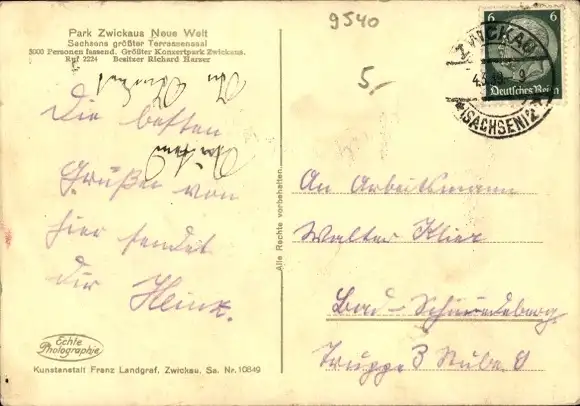 9540
Park Zwickaus Neue Welt
Sachsens größter Terrassensaal
3000 Personen fassend. Größter Konzertpark Zwickaus.
Ruf 2224 Besitzer Richard Harzer
6 6
Deutsches Reich
ZWICKAU
(SACHSEN) 2
5,-
Die besten
Grüße von
hier sendet
dir Heinz.
An Arbeitsmann
Walter Klier
Bad-Schmiedeberg
Truppe 3 Stube 8
Alle Rechte vorbehalten
Echte
Photographie
Kunstanstalt Franz Landgraf, Zwickau, Sa. Nr. 10849